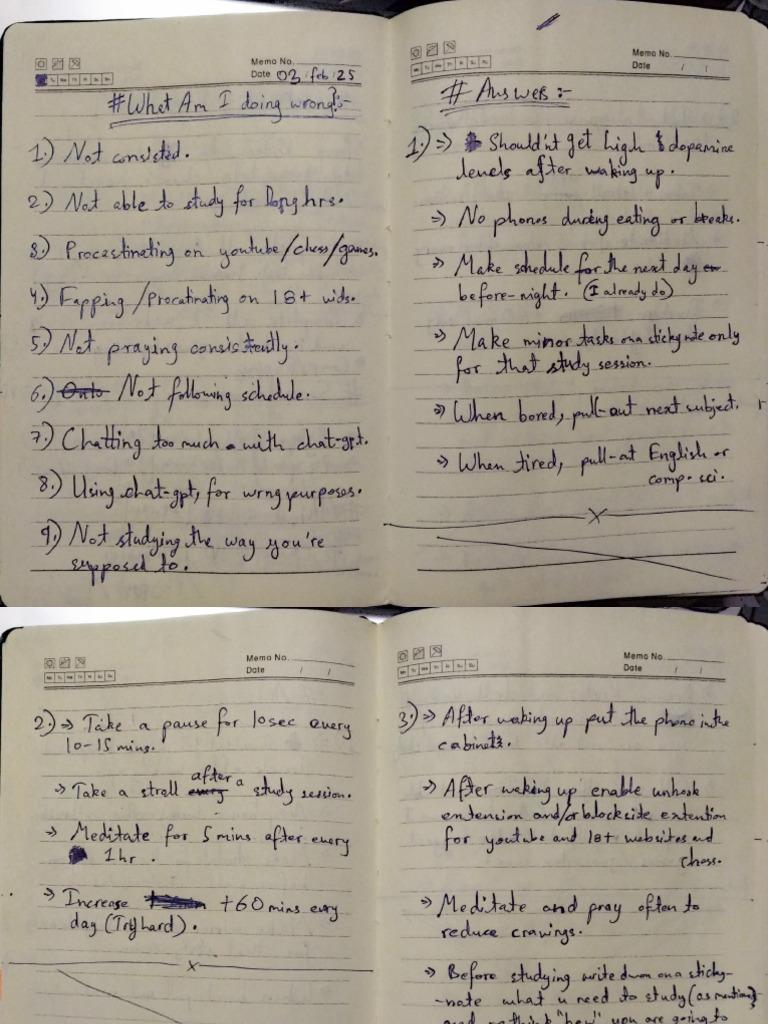 Memo No.
Date 03 / feb / 25
#What Am I doing wrong?:-
1.) Not consisted.
2.) Not able to study for long hrs.
3.) Procastinating on youtube/chess/games.
4.) Fapping/procatinating on 18+ vids.
5.) Not praying consistently.
6.) Not following schedule.
7.) Chatting too much with chat-gpt.
8.) Using chat-gpt, for wrng purposes.
9.) Not studying the way you're
supposed to.
Memo No.
Date / /
# Answers :-
1.) => Should'nt get high dopamine
levels after waking up.
=> No phones during eating or breaks.
=> Make schedule for the next day
before-night. (I already do)
=> Make minor tasks on a sticky note only
for that study session.
=> When bored, pull-out next subject.
=> When tired, pull-at English or
comp. sci.
Memo No.
Date / /
2.) => Take a pause for 10sec every
10-15 mins.
=> Take a stroll after a study session.
=> Meditate for 5 mins after every
1 hr .
=> Increase +60 mins every
day (Try hard) .
Memo No.
Date / /
3.) => After waking up put the phone in the
cabinets.
=> After waking up enable unhook
extension and/or blocksite extention
for youtube and 18+ websites and
chess.
=> Meditate and pray often to
reduce cravings.
=> Before studying write down on a sticky-
-note what u need to study (as mention)
"how" you are going to